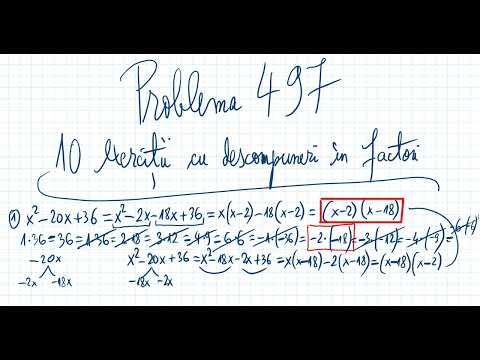 Problema 497
10 exerciții cu descompuneri în factori
1) x²-20x+36 = x²-2x-18x+36 = x(x-2)-18(x-2) = (x-2)(x-18)
1·36=36=1·36=2·18=3·12=4·9=6·6=-1·(-36)=-2·(-18)=-3·(-12)=-4·(-9)=-6·(-6)
-20x x²-20x+36 = x²-18x-2x+36 = x(x-18)-2(x-18)=(x-18)(x-2)
-2x -18x -18x -2x